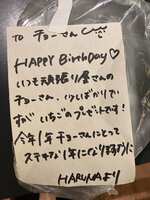 TO チョーさん
HAPPY BirthDAY♡
いつも頑張り屋さんの
チョーさん、いつばかりで
すが いちごのプレゼントです!
今年1年チョーさんにとって
ステキな1年になりますように
HARUNAより